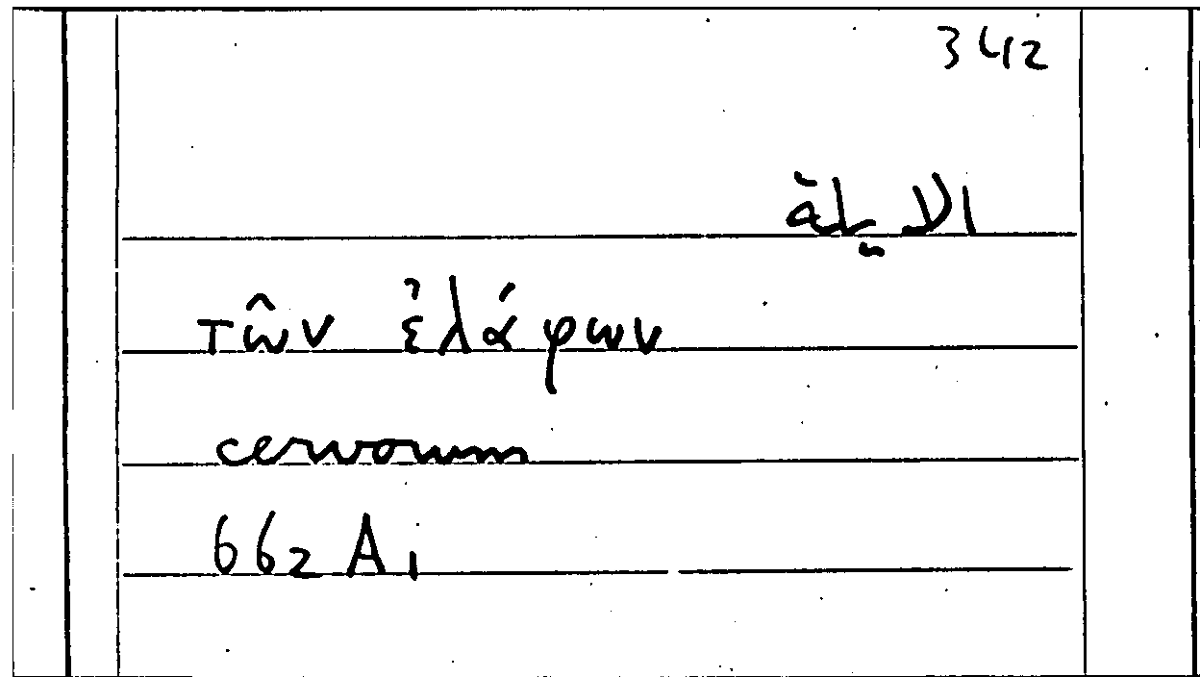 342
الايلة
τῶν ἐλάφων
cervorum
662 A1